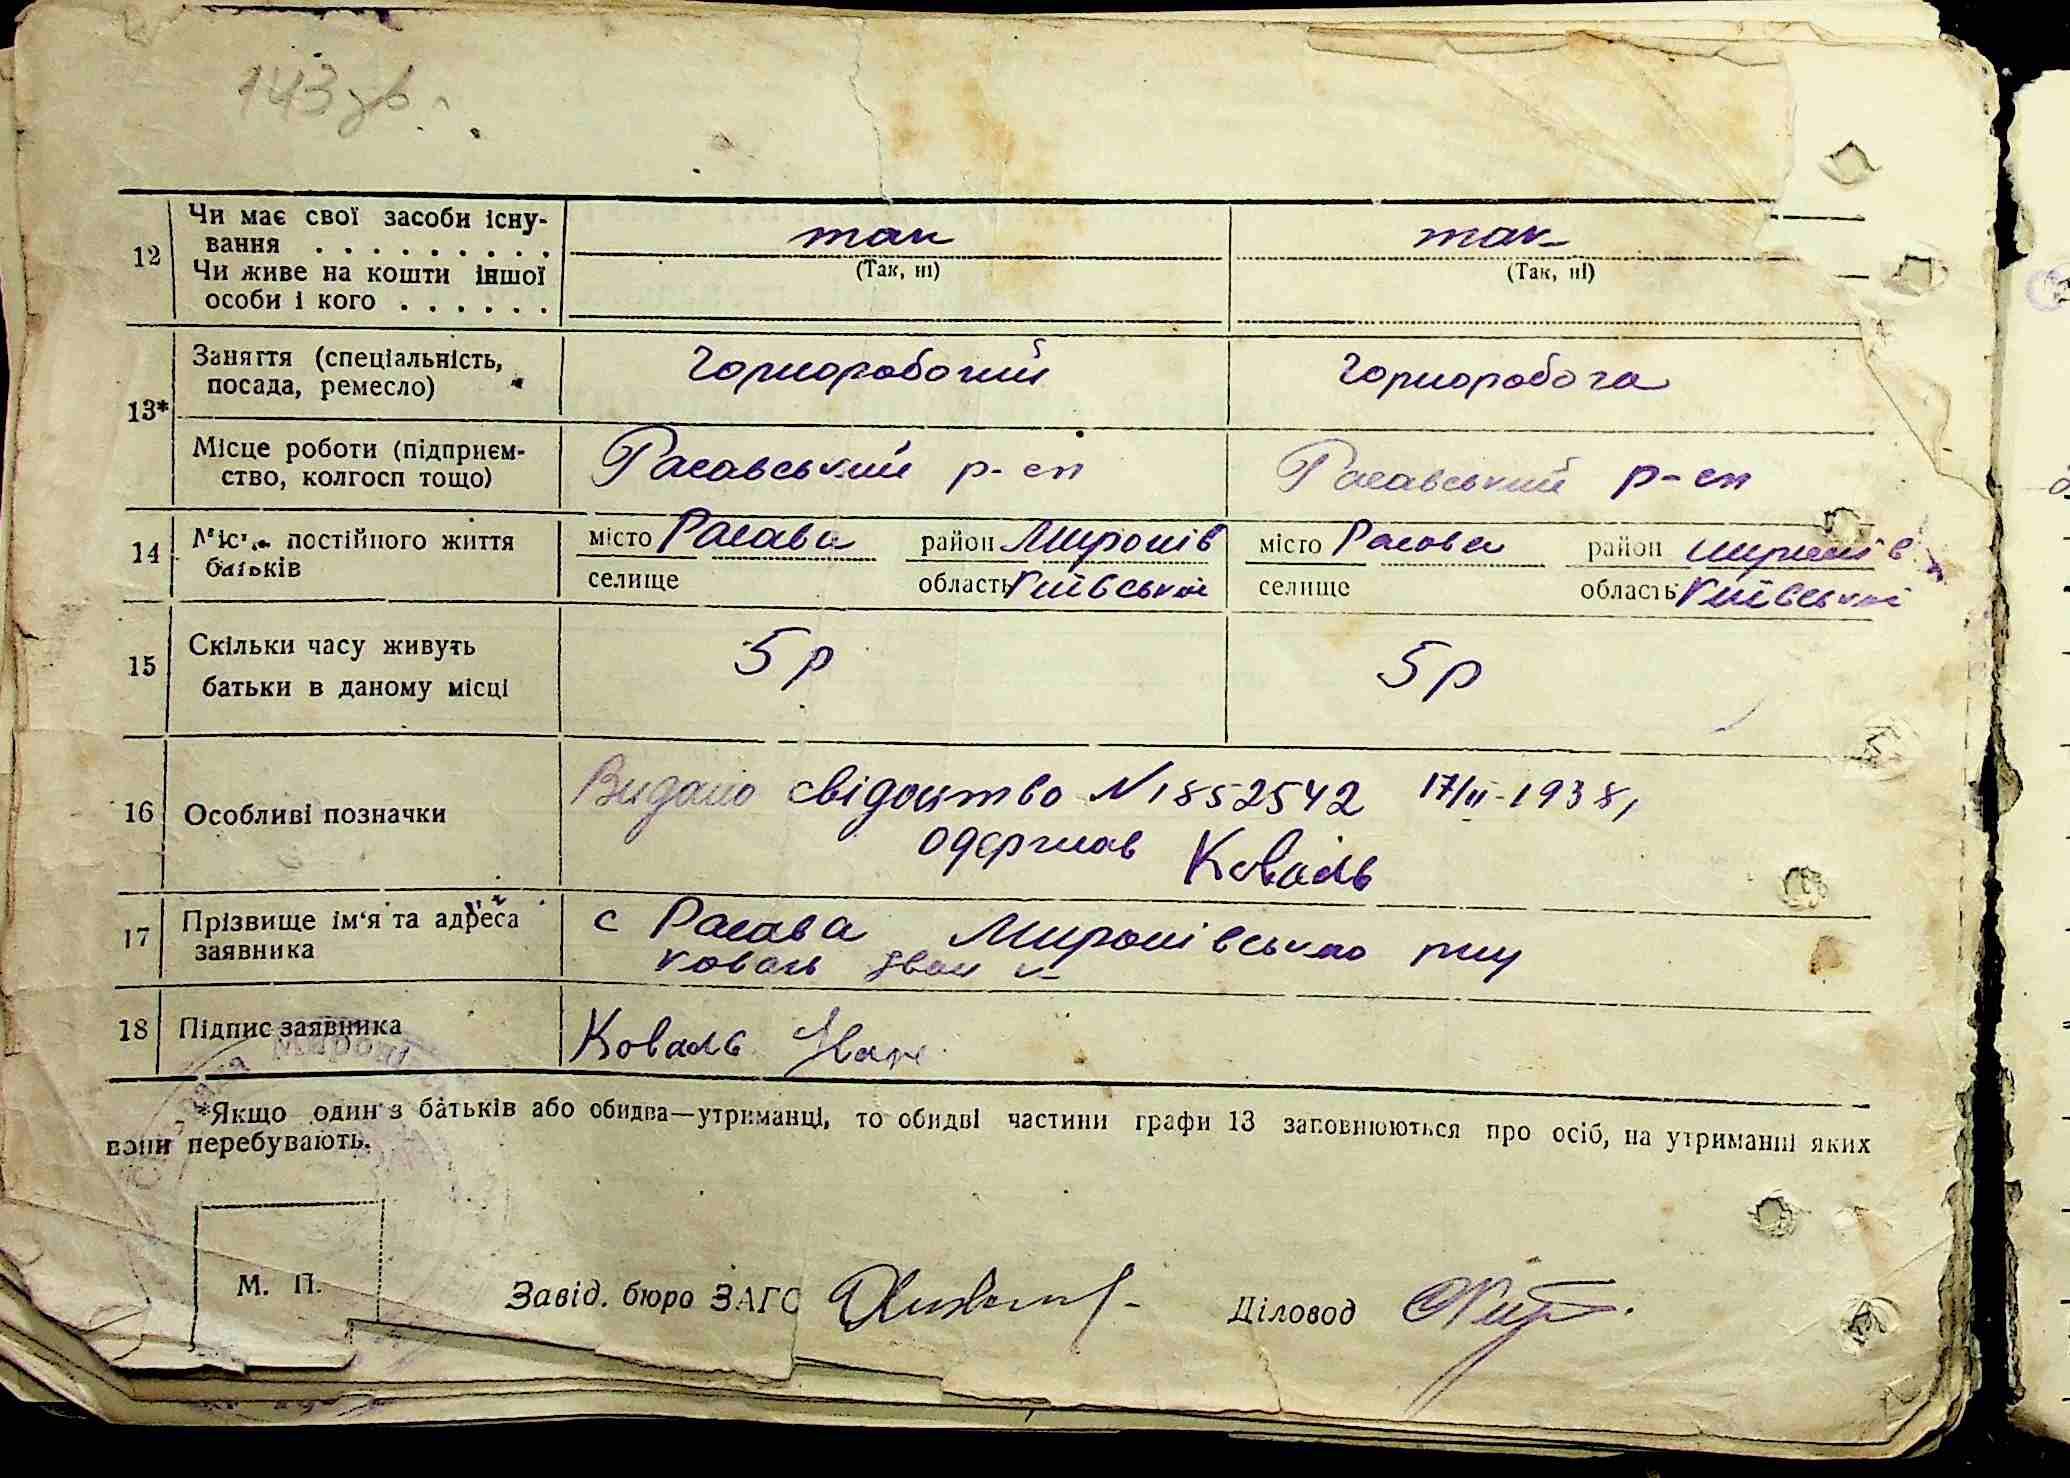 143 зв.
12 Чи має свої засоби існу-
вання . . . . . . . . . так так
(Так, ні) (Так, ні)
Чи живе на кошти іншої
особи і кого . . . . . .
13* Заняття (спеціальність,
посада, ремесло) Чорноробочий Чорноробоча
Місце роботи (підприєм-
ство, колгосп тощо) Расавський р-сп Расавський р-сп
14 постійного життя місто Расава район Миронів місто Расова район Миронів
батьків селище область Київської селище область Київської
15 Скільки часу живуть
батьки в даному місці 5 р 5 р
16 Особливі позначки Видано свідоцтво N 1852542 17/II-1938,
одержав Коваль
17 Прізвище ім'я та адреса с Расава Миронівського
заявника Коваль Іван
18 Підпис заявника Коваль Іван
*Якщо один з батьків або обидва—утриманці, то обидві частини графи 13 заповнюються про осіб, на утриманні яких
вони перебувають.
М. П. Завід. бюро ЗАГС Діловод